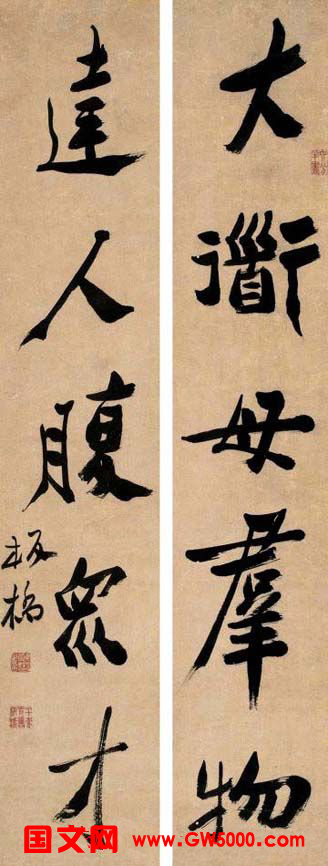 大衜母羣物
達人腹眾才
板橋
国文网 www.GW5000.com